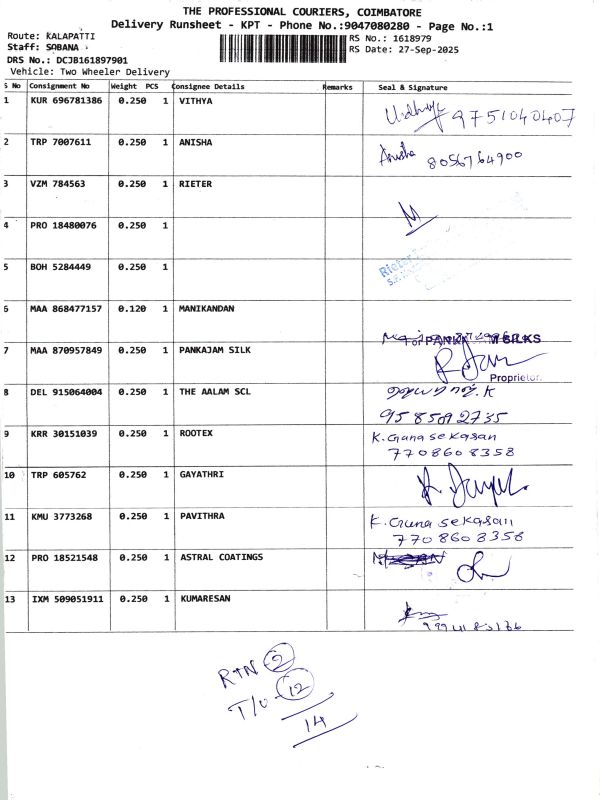 THE PROFESSIONAL COURIERS, COIMBATORE
Delivery Runsheet - KPT - Phone No.:9047080280 - Page No.:1
Route: KALAPATTI
Staff: SOBANA
DRS No.: DCJB161897901
Vehicle: Two Wheeler Delivery
RS No.: 1618979
RS Date: 27-Sep-2025
S No Consignment No Weight PCS Consignee Details Remarks Seal & Signature
1 KUR 696781386 0.250 1 VITHYA 9751040407
2 TRP 7007611 0.250 1 ANISHA Anisha 8056764900
3 VZM 784563 0.250 1 RIETER
4 PRO 18480076 0.250 1
Rieter
5 BOH 5284449 0.250 1
6 MAA 868477157 0.120 1 MANIKANDAN
7 MAA 870957849 0.250 1 PANKAJAM SILK
SILKS
Proprietor.
8 DEL 915064004 0.250 1 THE AALAM SCL
9585092735
9 KRR 30151039 0.250 1 ROOTEX K. Gunasekasan
7708608358
10 TRP 605762 0.250 1 GAYATHRI
11 KMU 3773268 0.250 1 PAVITHRA K. Gunasekasan
7708608358
12 PRO 18521548 0.250 1 ASTRAL COATINGS
13 IXM 509051911 0.250 1 KUMARESAN
RTN 2
T/O - 12
14